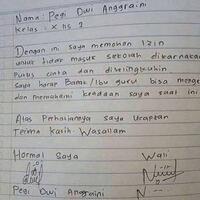 Nama: Pegi Dwi Anggraini
Kelas: X
Dengan ini Saya memohon Izin
untuk tidak masuk sekolah dikarnakan
Putus cinta dan diselingkuhin
Saya harap Bapak/Ibu guru bisa
dan memahami keadaan saya saat ini
Atas Perhatiannya saya Ucapkan
Terima kasih Wasallam
Hormat Saya Wali
Pegi Dwi Anggraini